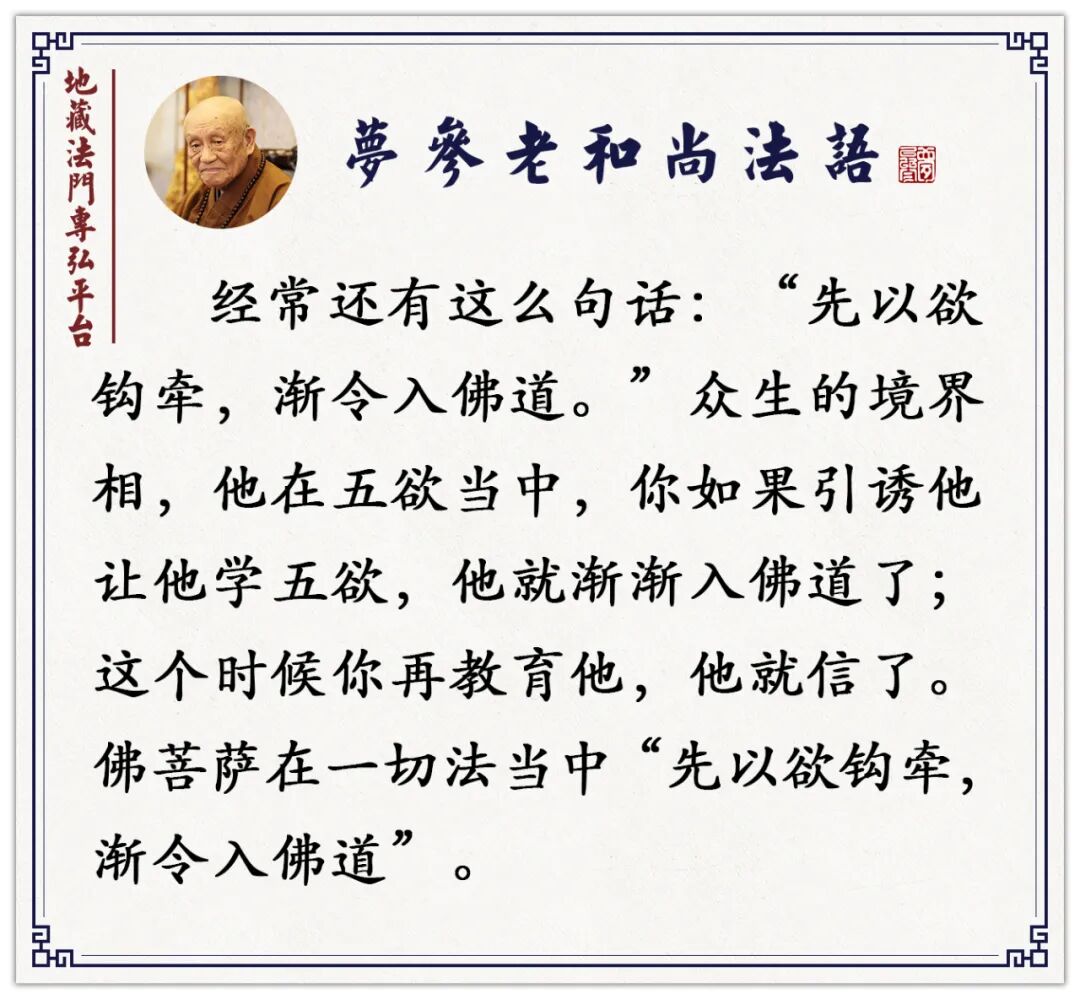 地藏法門專弘平台
夢參老和尚法語
经常还有这么句话：“先以欲
钩牵，渐令入佛道。”众生的境界
相，他在五欲当中，你如果引诱他
让他学五欲，他就渐渐入佛道了；
这个时候你再教育他，他就信了。
佛菩萨在一切法当中“先以欲钩牵，
渐令入佛道”。